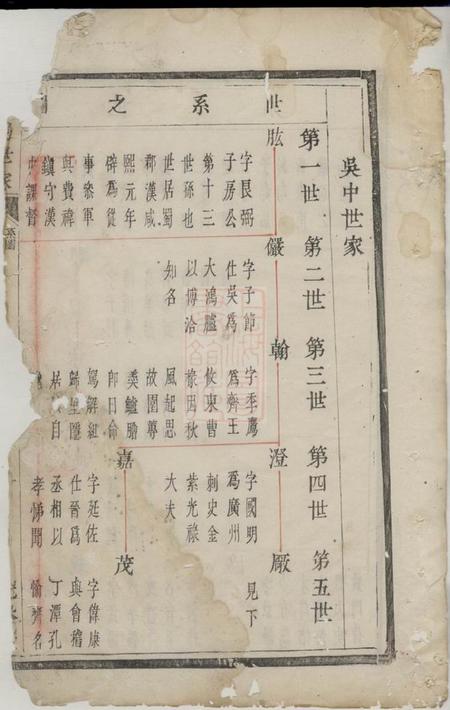 世系之
吳中世家
第一世 第二世 第三世 第四世 第五世
肱 儼 翰 澄 厰
字良弼
子房公
第十三
世孫也
世居蜀
郡漢咸
熙元年
辟為從
事叅軍
與費禕
鎮守漢
中課督
字子節
仕吳為
大鴻臚
以博洽
知名
字季鷹
為齊王
攸東曹
掾因秋
風起思
故園蓴
羹鱸膾
即日命
駕解組
歸里隱
居 自
字國明
為廣州
刺史金
紫光祿
大夫
見下
嘉 茂
字延佐
仕晉為
丞相以
孝悌聞
字偉康
與會稽
丁潭孔
愉齊名
世家
系圖